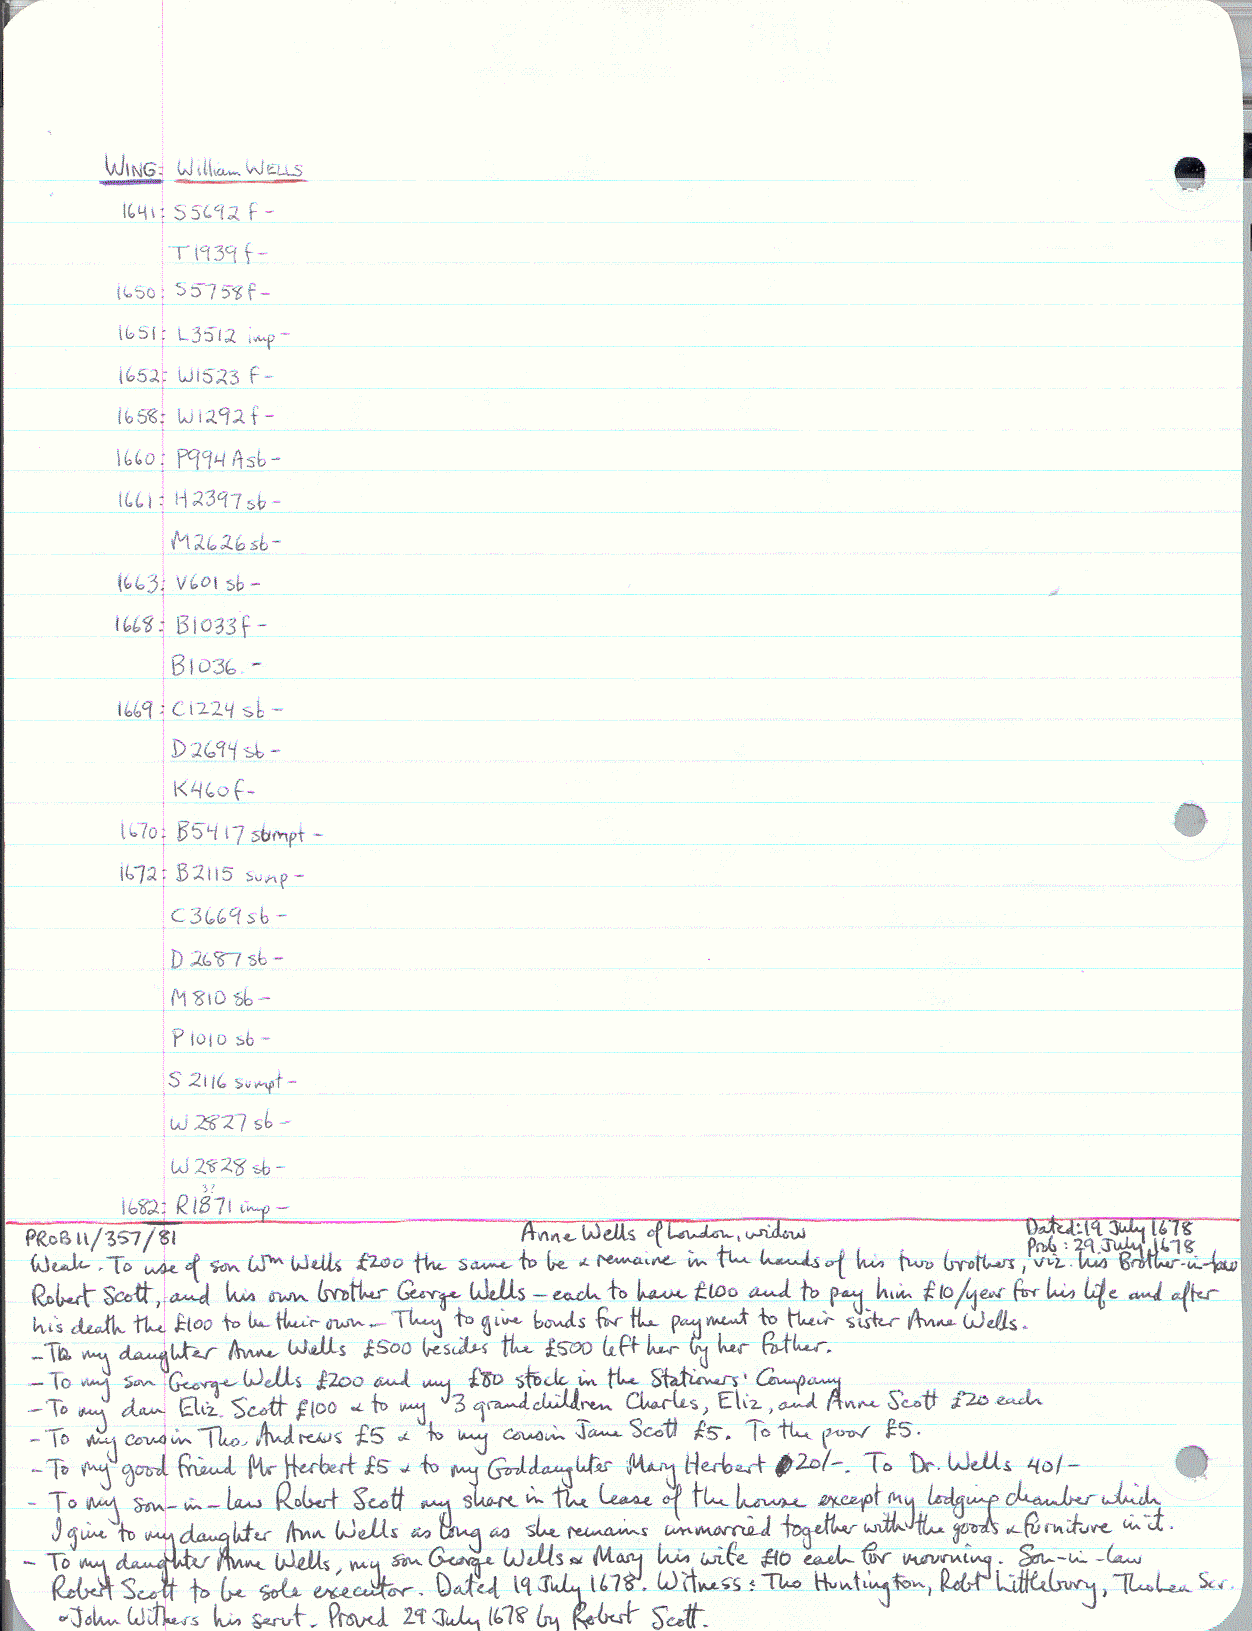 WING: William WELLS
1641: S5692 f -
T1939 f -
1650: S5758 f -
1651: L3512 imp -
1652: W1523 f -
1658: W1292 f -
1660: P994A sb -
1661: H2397 sb -
M2626 sb -
1663: V601 sb -
1668: B1033 f -
B1036. -
1669: C1224 sb -
D2694 sb -
K460 f -
1670: B5417 sbmpt -
1672: B2115 sump -
C3669 sb -
D2687 sb -
M810 sb -
P1010 sb -
S2116 sumpt -
W2827 sb -
W2828 sb -
3?
1682: R1871 imp -
PROB 11/357/81 Anne Wells of London, widow Dated: 19 July 1678
Prob: 29 July 1678
Weak. To use of son Wm Wells £200 the same to be & remaine in the hands of his two brothers, viz. his Brother-in-law
Robert Scott, and his own brother George Wells - each to have £100 and to pay him £10/year for his life and after
his death the £100 to be their own. They to give bonds for the payment to their sister Anne Wells.
- To my daughter Anne Wells £500 besides the £500 left her by her father.
- To my son George Wells £200 and my £80 stock in the Stationers' Company
- To my dau Eliz. Scott £100 & to my 3 grandchildren Charles, Eliz, and Anne Scott £20 each
- To my cousin Tho. Andrews £5 & to my cousin Jane Scott £5. To the poor £5.
- To my good friend Mr Herbert £5 & to my Goddaughter Mary Herbert 20/-. To Dr. Wells 40/-
- To my son-in-law Robert Scott my share in the lease of the house except my lodging chamber which
I give to my daughter Ann Wells as long as she remains unmarried together with the goods & furniture in it.
- To my daughter Anne Wells, my son George Wells & Mary his wife £10 each for mourning. Son-in-law
Robert Scott to be sole executor. Dated 19 July 1678. Witness: Tho Huntington, Robt Littlebury, Tho Lea Scr.
& John Withers his servt. Proved 29 July 1678 by Robert Scott.